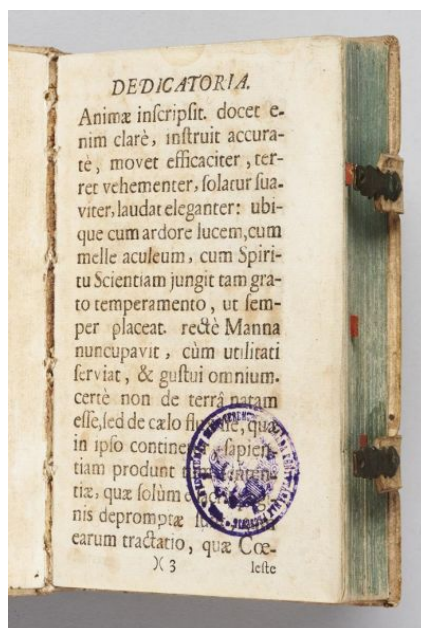 DEDICATORIA.
Animæ inſcripſit. docet e-
nim clarè, inſtruit accura-
tè, movet efficaciter, ter-
ret vehementer, ſolatur ſua-
viter, laudat eleganter: ubi-
que cum ardore lucem, cum
melle aculeum, cum Spiri-
tu Scientiam jungit tam gra-
to temperamento, ut ſem-
per placeat. rectè Manna
nuncupavit, cùm utilitati
ſerviat, & guſtui omnium.
certè non de terrâ natam
eſſe, ſed de cælo quæ
in ipſo ſapien-
tiam produnt
tiæ, quæ ſolùm
nis depromptæ
earum tractatio, quæ Cœ-
)( 3 leſte